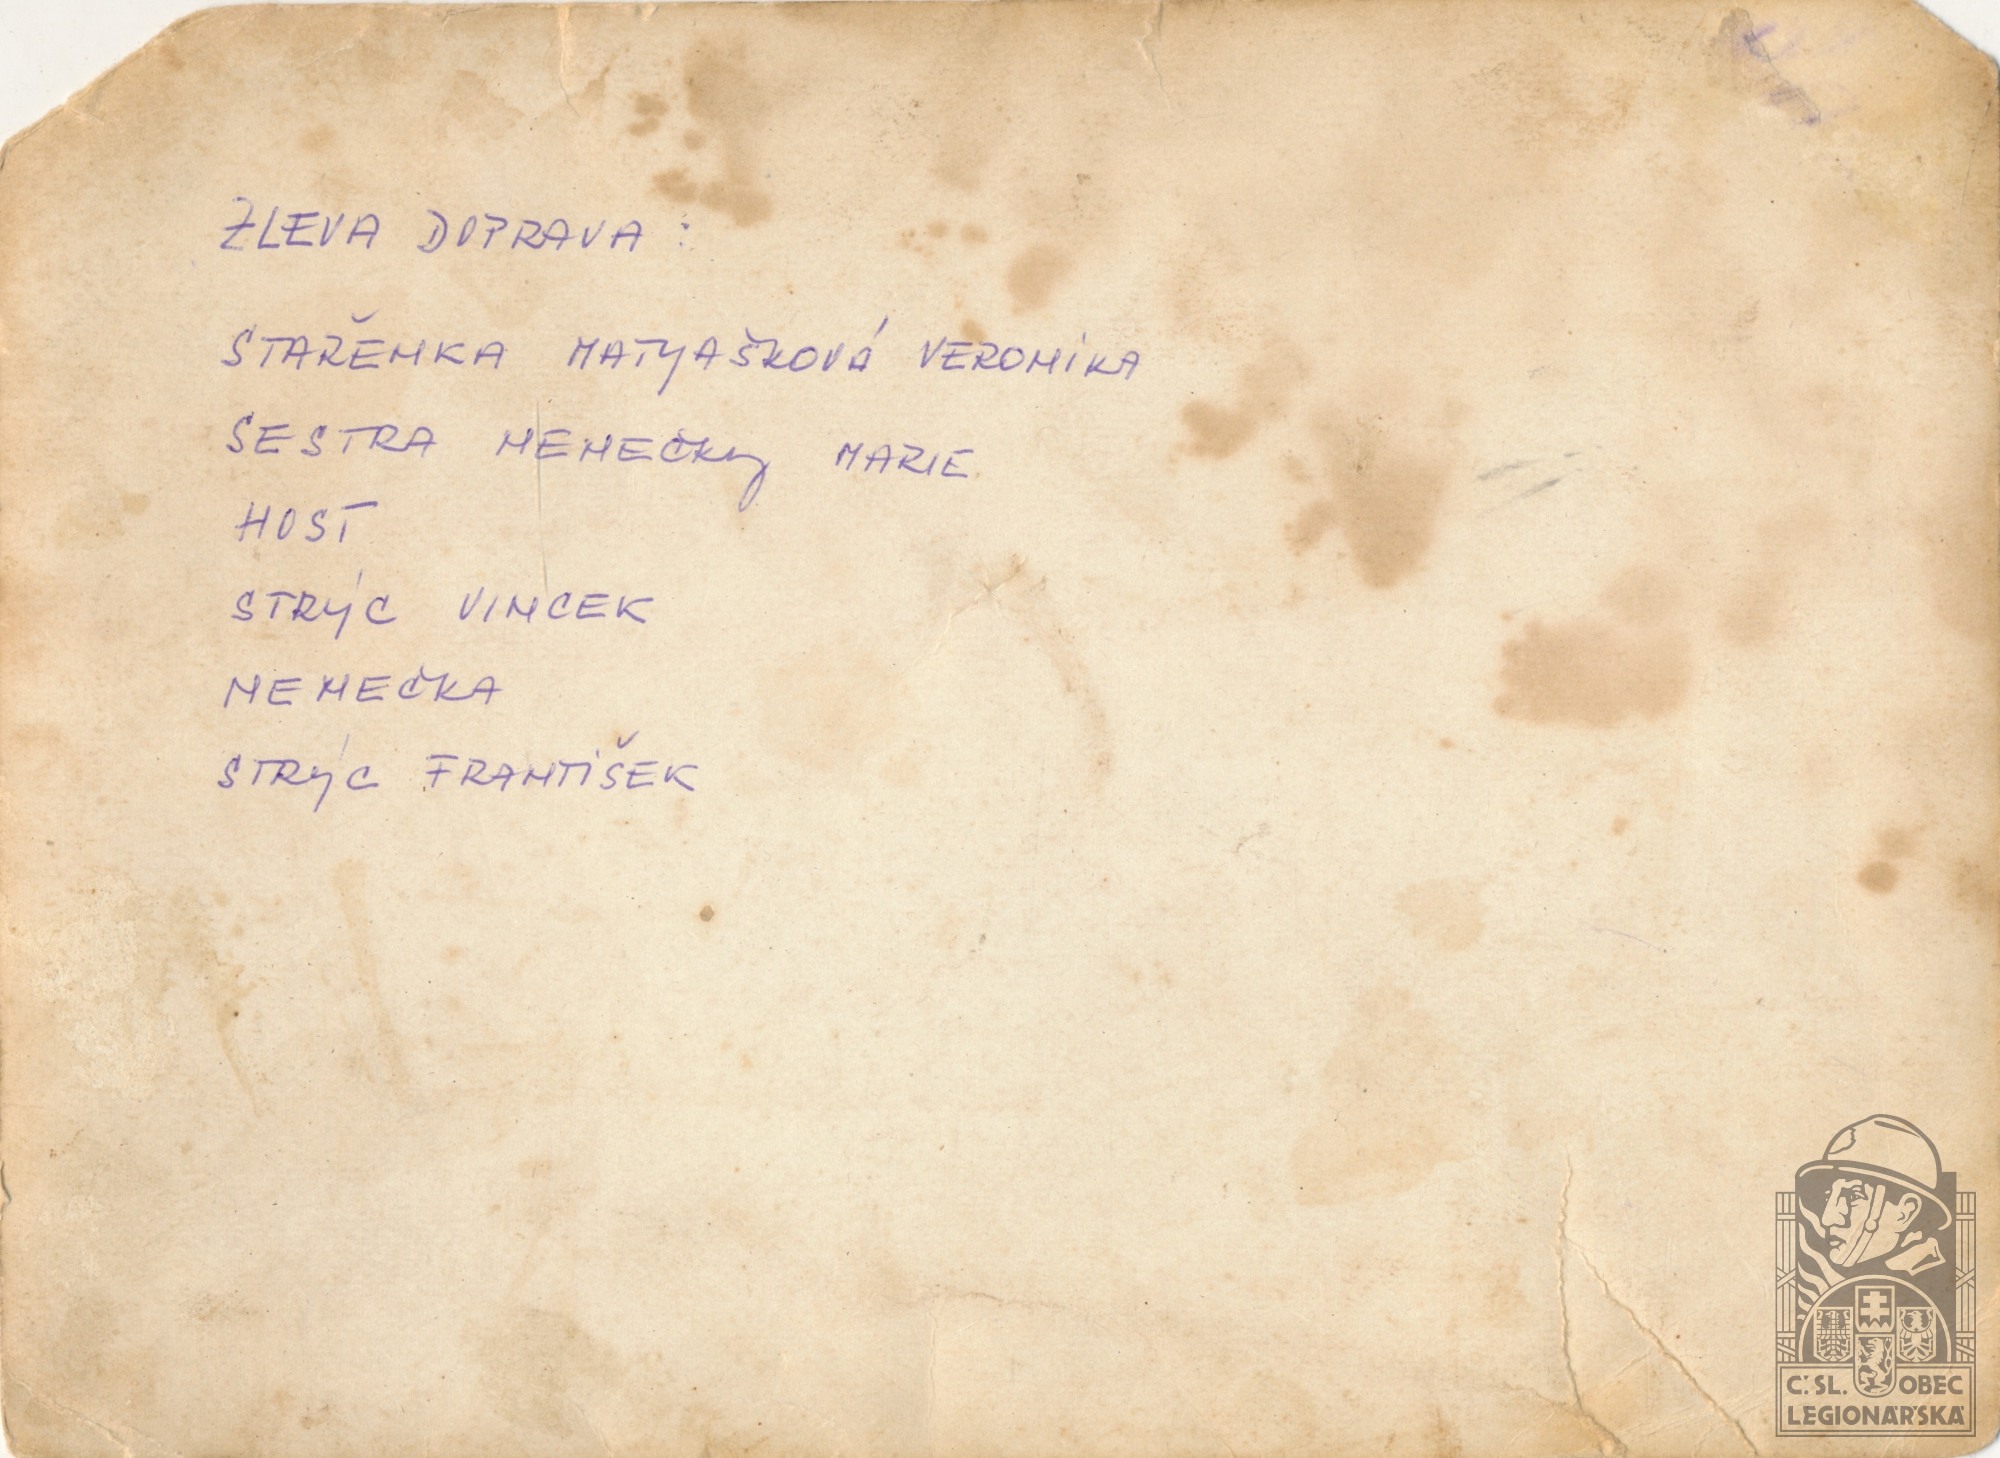 ZLEVA DOPRAVA:
STAŘENKA MATYAŠKOVÁ VERONIKA
SESTRA NEMEČKY MARIE
HOST
STRÝC VINCEK
NEMEČKA
STRÝC FRANTIŠEK
Č.SL. OBEC
LEGIONÁŘSKÁ